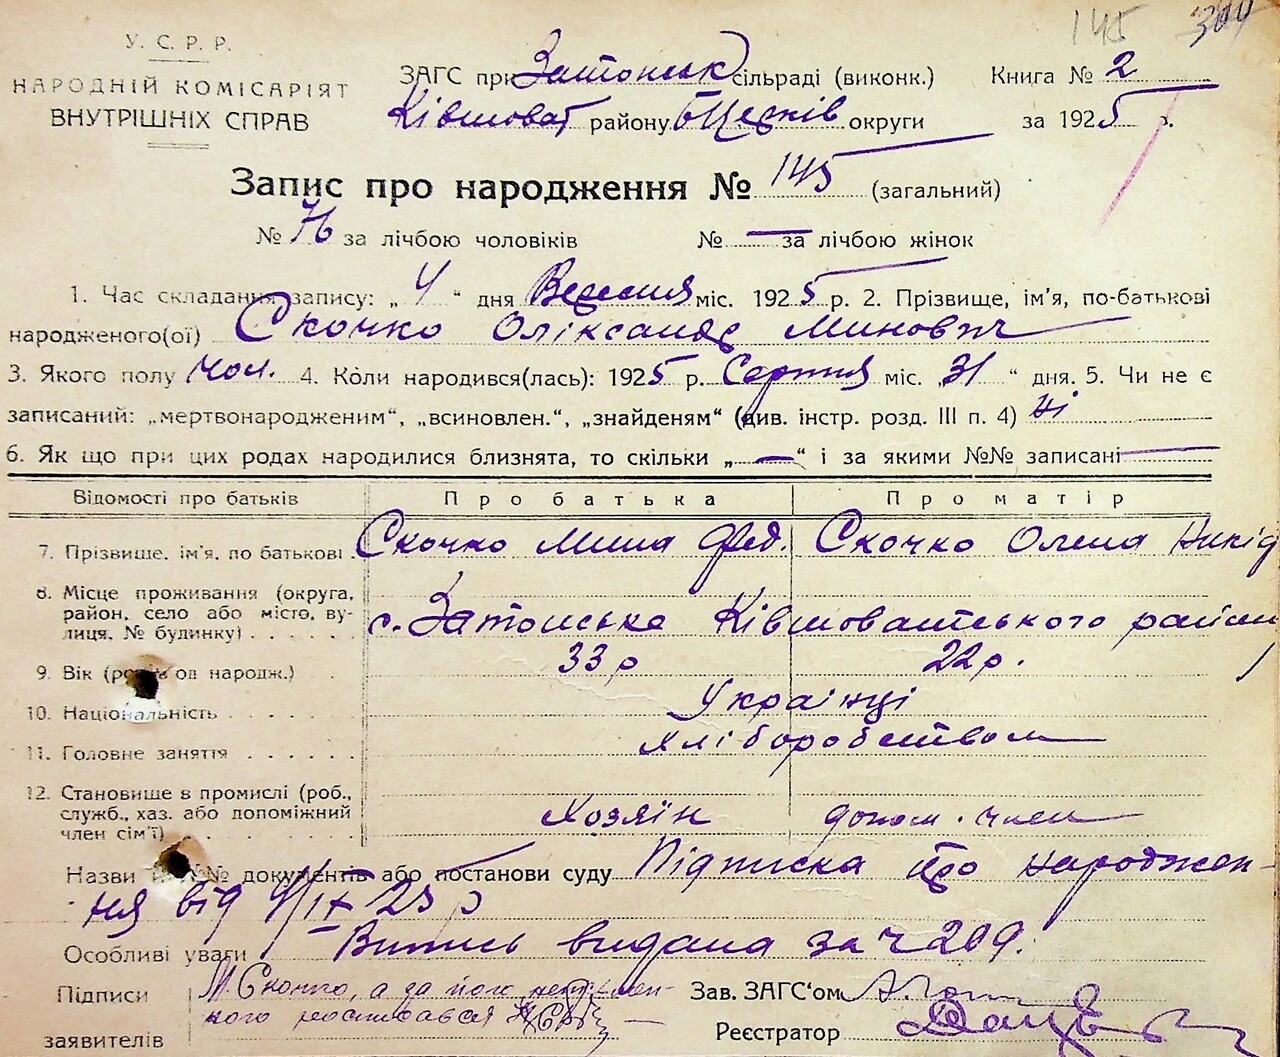 145 304
У. С. Р. Р.
НАРОДНІЙ КОМІСАРІЯТ
ВНУТРІШНІХ СПРАВ
ЗАГС при Затонськ сільраді (виконк.) Книга № 2
Ківшоват району БЦерків округи за 1925 р.
Запис про народження № 145 (загальний)
№ 76 за лічбою чоловіків № — за лічбою жінок
1. Час складання запису: „ 4 “ дня Вересня міс. 1925 р. 2. Прізвище, ім'я, по-батькові
народженого(ої) Скочко Оліксандр Минович
3. Якого полу чол. 4. Коли народився(лась): 1925 р. Серпня міс. „ 31 “ дня. 5. Чи не є
записаний: „мертвонародженим“, „всиновлен.“, „знайденям“ (див. інстр. розд. III п. 4) Ні
6. Як що при цих родах народилися близнята, то скільки „ — “ і за якими №№ записані —
Відомості про батьків Про батька Про матір
7. Прізвище, ім'я, по батькові Скочко Мина Фед. Скочко Олена Никід
8. Місце проживання (округа,
район, село або місто, ву-
лиця, № будинку) с. Затонська Ківшоватського район
9. Вік (років од народж.) 33 р 22 р.
10. Національність Українці
11. Головне заняття хліборобством
12. Становище в промислі (роб.,
служб., хаз. або допоміжний
член сім'ї) Хозяїн допом. член
Назви й №№ документів або постанови суду Підписка про народжен-
ня від 4/IX 25 р
Особливі уваги Витись видана за ч 209.
Підписи заявителів М Скочко, а за його
кого росписався
Зав. ЗАГС'ом
Реєстратор